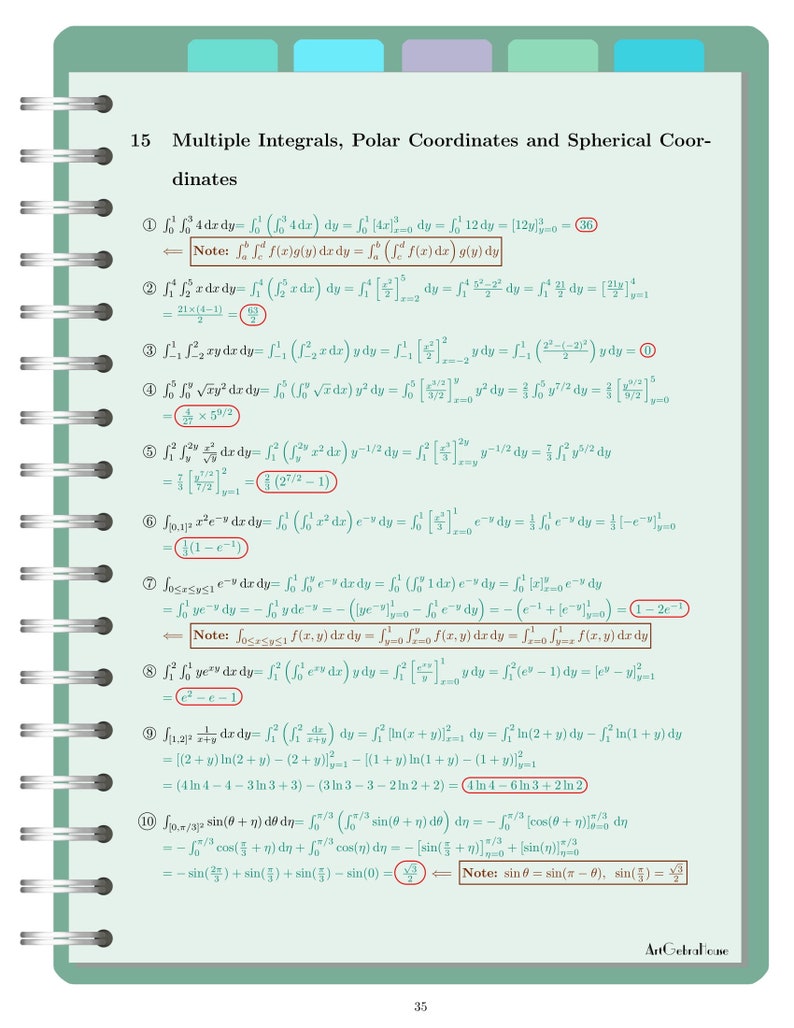 15 Multiple Integrals, Polar Coordinates and Spherical Coor-
dinates
① ∫₀¹ ∫₀³ 4 dx dy = ∫₀¹ (∫₀³ 4 dx) dy = ∫₀¹ [4x]³ₓ₌₀ dy = ∫₀¹ 12 dy = [12y]³_{y=0} = 36
⟸ Note: ∫_a^b ∫_c^d f(x)g(y) dx dy = ∫_a^b (∫_c^d f(x) dx) g(y) dy
② ∫₁⁴ ∫₂⁵ x dx dy = ∫₁⁴ (∫₂⁵ x dx) dy = ∫₁⁴ [x²/2]⁵_{x=2} dy = ∫₁⁴ (5²−2²)/2 dy = ∫₁⁴ 21/2 dy = [21y/2]⁴_{y=1}
= 21×(4−1)/2 = 63/2
③ ∫_{−1}^1 ∫_{−2}^2 xy dx dy = ∫_{−1}^1 (∫_{−2}^2 x dx) y dy = ∫_{−1}^1 [x²/2]²_{x=−2} y dy = ∫_{−1}^1 ((2²−(−2)²)/2) y dy = 0
④ ∫₀⁵ ∫₀^y √x y² dx dy = ∫₀⁵ (∫₀^y √x dx) y² dy = ∫₀⁵ [x^{3/2}/(3/2)]^y_{x=0} y² dy = 2/3 ∫₀⁵ y^{7/2} dy = 2/3 [y^{9/2}/(9/2)]⁵_{y=0}
= 4/27 × 5^{9/2}
⑤ ∫₁² ∫_y^{2y} x²/√y dx dy = ∫₁² (∫_y^{2y} x² dx) y^{−1/2} dy = ∫₁² [x³/3]^{2y}_{x=y} y^{−1/2} dy = 7/3 ∫₁² y^{5/2} dy
= 7/3 [y^{7/2}/(7/2)]²_{y=1} = 2/3 (2^{7/2} − 1)
⑥ ∫_{[0,1]²} x²e^{−y} dx dy = ∫₀¹ (∫₀¹ x² dx) e^{−y} dy = ∫₀¹ [x³/3]¹_{x=0} e^{−y} dy = 1/3 ∫₀¹ e^{−y} dy = 1/3 [−e^{−y}]¹_{y=0}
= 1/3(1 − e^{−1})
⑦ ∫_{0≤x≤y≤1} e^{−y} dx dy = ∫₀¹ ∫₀^y e^{−y} dx dy = ∫₀¹ (∫₀^y 1 dx) e^{−y} dy = ∫₀¹ [x]^y_{x=0} e^{−y} dy
= ∫₀¹ ye^{−y} dy = −∫₀¹ y de^{−y} = −([ye^{−y}]¹_{y=0} − ∫₀¹ e^{−y} dy) = −(e^{−1} + [e^{−y}]¹_{y=0}) = 1 − 2e^{−1}
⟸ Note: ∫_{0≤x≤y≤1} f(x, y) dx dy = ∫_{y=0}^1 ∫_{x=0}^y f(x, y) dx dy = ∫_{x=0}^1 ∫_{y=x}^1 f(x, y) dx dy
⑧ ∫₁² ∫₀¹ ye^{xy} dx dy = ∫₁² (∫₀¹ e^{xy} dx) y dy = ∫₁² [e^{xy}/y]¹_{x=0} y dy = ∫₁² (e^y − 1) dy = [e^y − y]²_{y=1}
= e² − e − 1
⑨ ∫_{[1,2]²} 1/(x+y) dx dy = ∫₁² (∫₁² dx/(x+y)) dy = ∫₁² [ln(x + y)]²_{x=1} dy = ∫₁² ln(2 + y) dy − ∫₁² ln(1 + y) dy
= [(2 + y) ln(2 + y) − (2 + y)]²_{y=1} − [(1 + y) ln(1 + y) − (1 + y)]²_{y=1}
= (4 ln 4 − 4 − 3 ln 3 + 3) − (3 ln 3 − 3 − 2 ln 2 + 2) = 4 ln 4 − 6 ln 3 + 2 ln 2
⑩ ∫_{[0,π/3]²} sin(θ + η) dθ dη = ∫₀^{π/3} (∫₀^{π/3} sin(θ + η) dθ) dη = −∫₀^{π/3} [cos(θ + η)]^{π/3}_{θ=0} dη
= −∫₀^{π/3} cos(π/3 + η) dη + ∫₀^{π/3} cos(η) dη = −[sin(π/3 + η)]^{π/3}_{η=0} + [sin(η)]^{π/3}_{η=0}
= −sin(2π/3) + sin(π/3) + sin(π/3) − sin(0) = √3/2 ⟸ Note: sin θ = sin(π − θ), sin(π/3) = √3/2
ArtGebraHouse
35